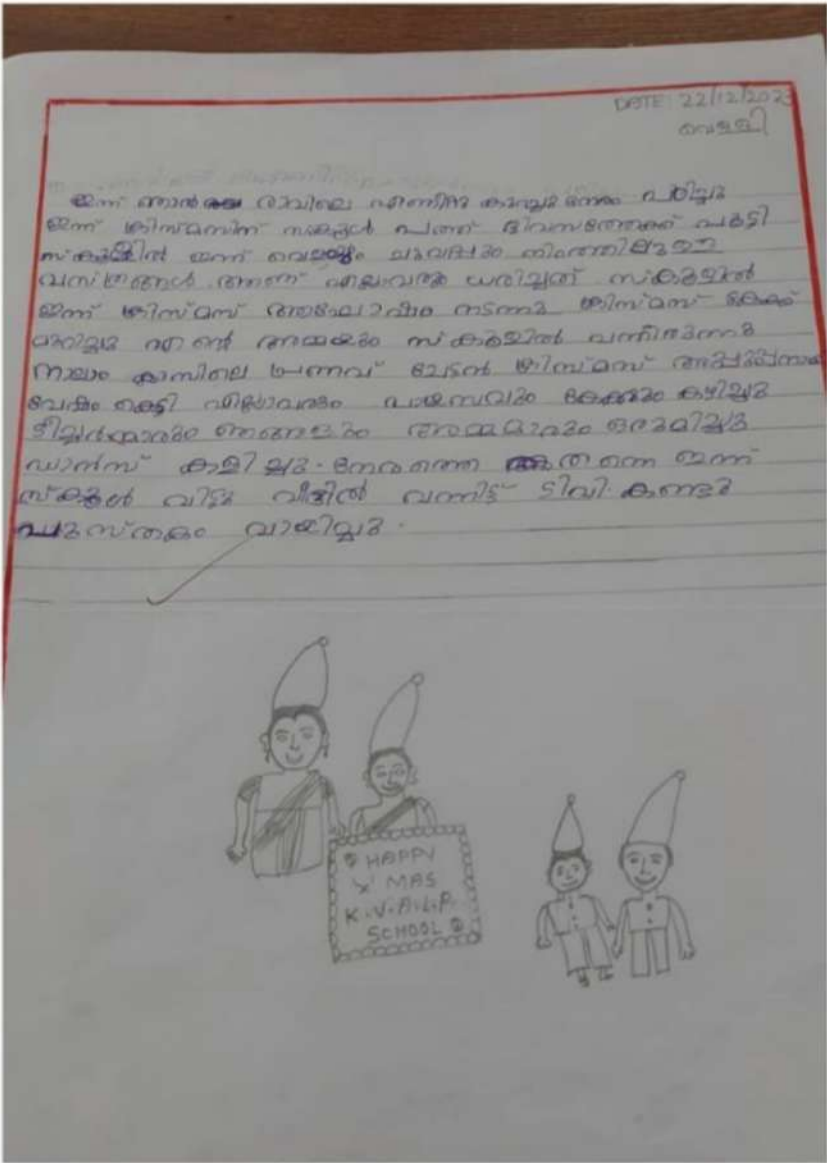 DATE: 22/12/2023
വെള്ളി
ഇന്ന് ഞാൻ രാവിലെ എണീറ്റു കുറച്ചു നേരം പഠിച്ചു
ഇന്ന് ക്രിസ്മസിന് സ്കൂൾ പത്ത് ദിവസത്തേക്ക് പൂട്ടി
സ്കൂളിൽ ഇന്ന് വെള്ളയും ചുവപ്പും നിറത്തിലുള്ള
വസ്ത്രങ്ങൾ ആണ് എല്ലാവരും ധരിച്ചത് സ്കൂളിൽ
ഇന്ന് ക്രിസ്മസ് ആഘോഷം നടന്നു ക്രിസ്മസ് കേക്ക്
മുറിച്ചു എന്റെ അമ്മയും സ്കൂളിൽ വന്നിരുന്നു
നാലാം ക്ലാസിലെ പ്രണവ് ചേട്ടൻ ക്രിസ്മസ് അപ്പൂപ്പന്റെ
വേഷം കെട്ടി എല്ലാവരും പായസവും കേക്കും കഴിച്ചു
ടീച്ചർമാരും ഞങ്ങളും അമ്മമാരും ഒരുമിച്ചു
ഡാൻസ് കളിച്ചു. നേരത്തെ തന്നെ ഇന്ന്
സ്കൂൾ വിട്ടു വീട്ടിൽ വന്നിട്ട് ടിവി. കണ്ടു
പുസ്തകം വായിച്ചു.
HAPPY
X' MAS
K.V.A.L.P.
SCHOOL